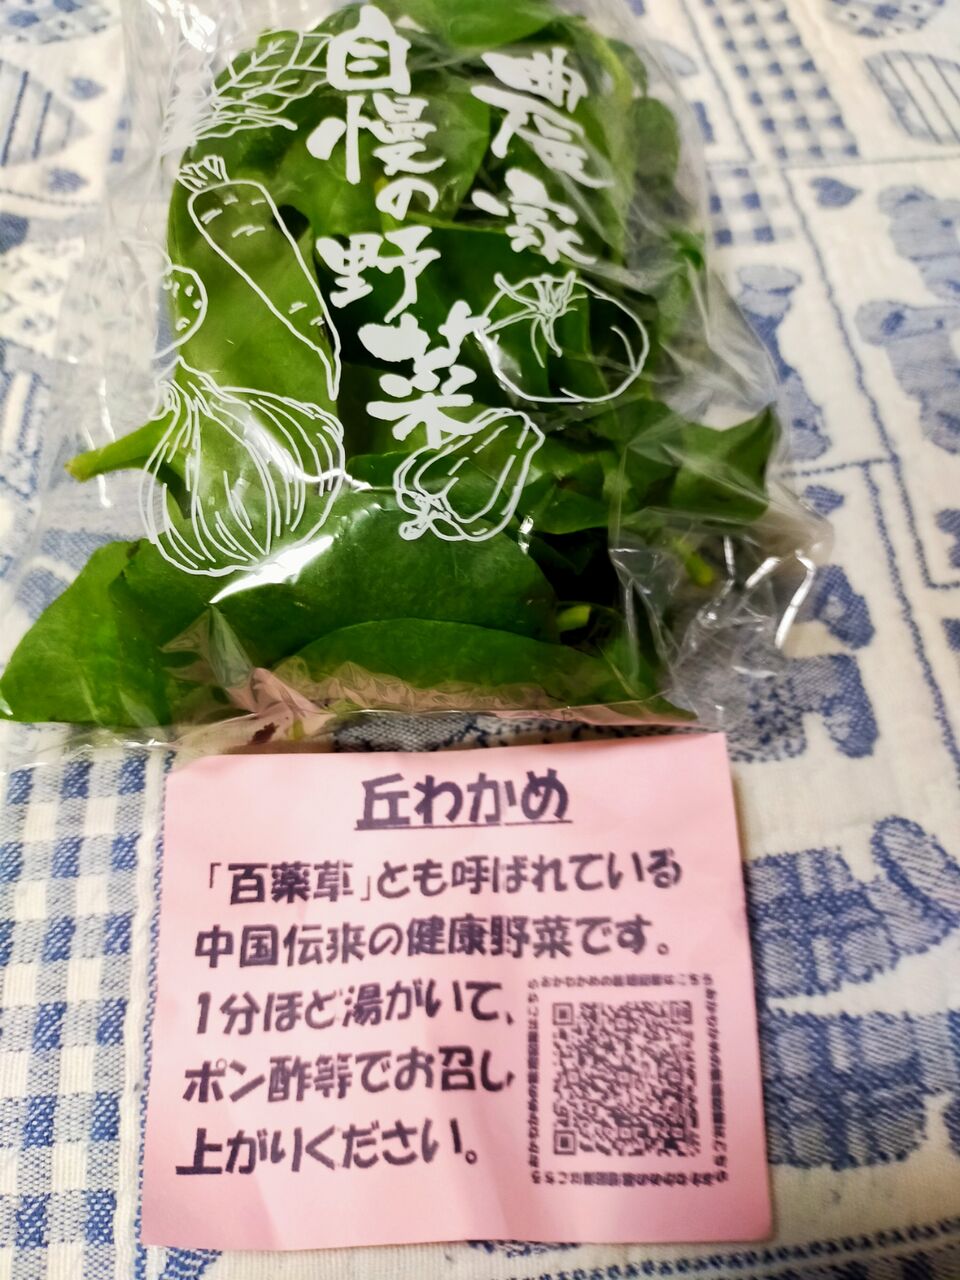 農家
自慢の野菜
丘わかめ
「百薬草」とも呼ばれている
中国伝来の健康野菜です。
1分ほど湯がいて、
ポン酢等でお召し
上がりください。